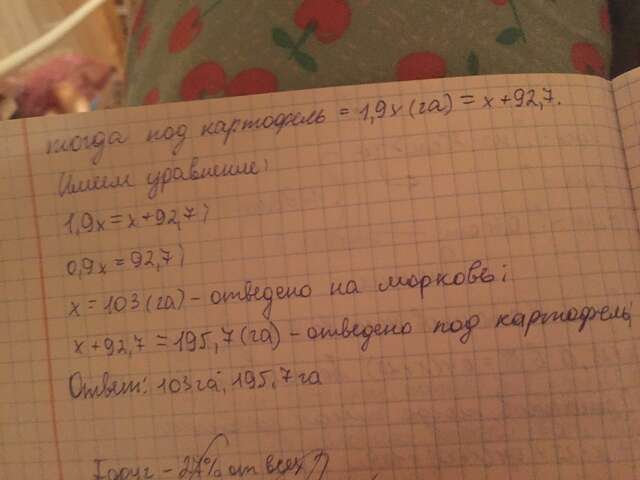 тогда под картофель = 1,9х(га) = х+92,7.
Имеем уравнение:
1,9х=х+92,7;
0,9х=92,7;
х=103(га)-отведено на морковь;
х+92,7=195,7(га)-отведено под картофель,
Ответ: 103га; 195,7га
- 27% от всех